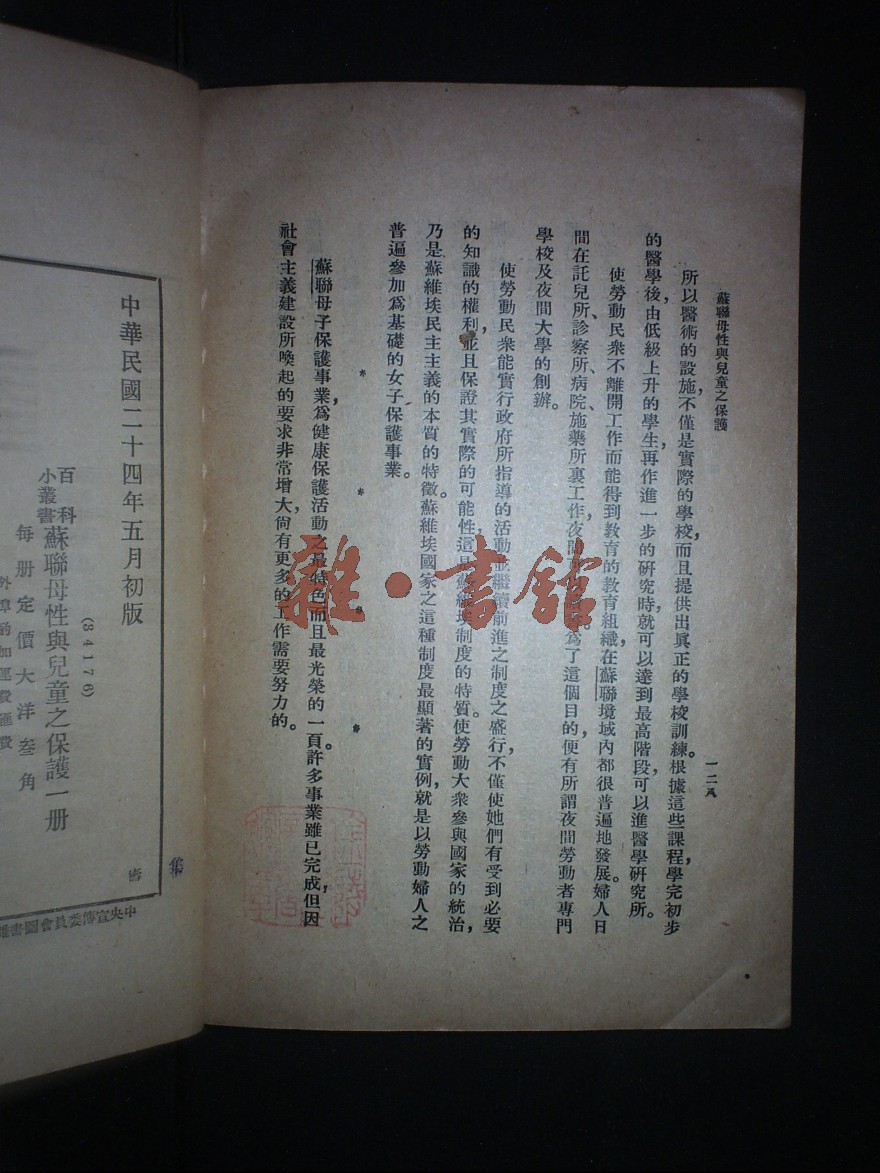 蘇聯母性與兒童之保護
一二八
所以醫術的設施,不僅是實際的學校,而且提供出眞正的學校訓練。根據這些課程,學完初步
的醫學後,由低級上升的學生,再作進一步的研究時,就可以達到最高階段,可以進醫學研究所。
使勞動民衆不離開工作而能得到教育的教育組織,在蘇聯境域內都很普遍地發展。婦人日
間在託兒所、診察所、病院、施藥所裏工作,夜間
爲了這個目的,便有所謂夜間勞動者專門
學校及夜間大學的創辦。
使勞動民衆能實行政府所指導的活動並繼續前進之制度之盛行,不僅使她們有受到必要
的知識的權利,並且保證其實際的可能性,這是蘇維埃制度的特質。使勞動大衆參與國家的統治,
乃是蘇維埃民主主義的本質的特徵。蘇維埃國家之這種制度最顯著的實例,就是以勞動婦人之
普遍參加爲基礎的女子保護事業。
* * * *
蘇聯母子保護事業,爲健康保護活動之最特色而且最光榮的一頁。許多事業雖已完成,但因
社會主義建設所喚起的要求非常增大,尙有更多的工作需要努力的。
雜·書館
中華民國二十四年五月初版
(34176)
百科小叢書
蘇聯母性與兒童之保護一册
每册定價大洋叁角
外埠酌加運費匯費
中央宣傳委員會圖書雜